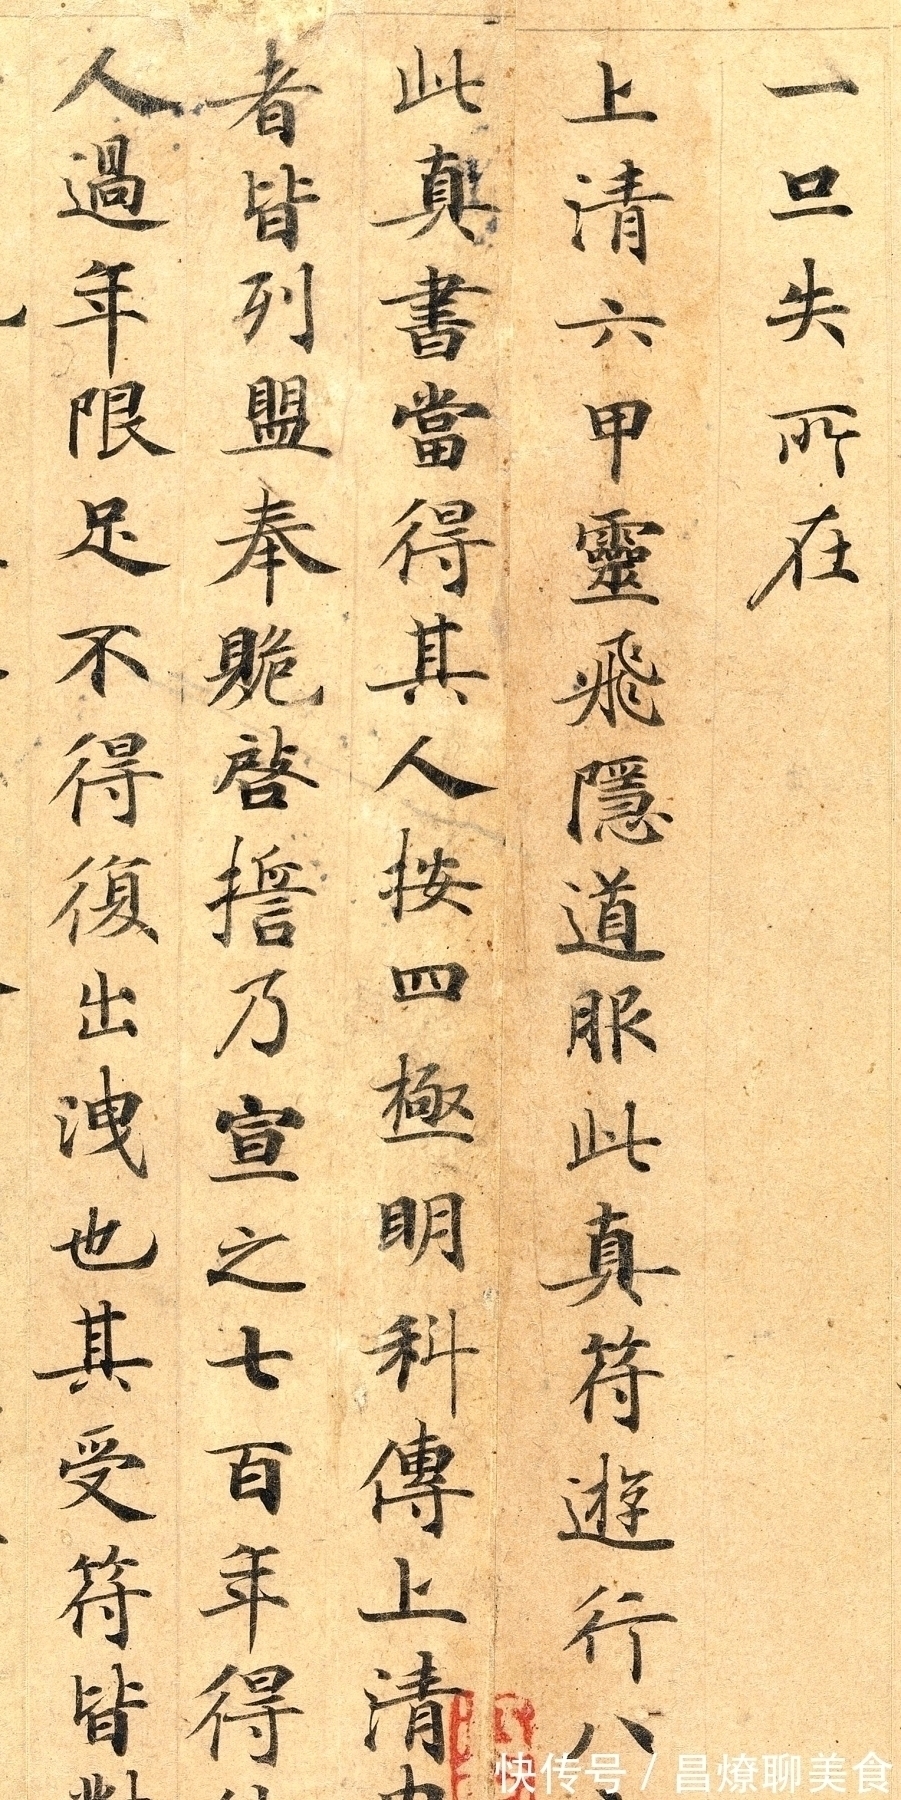 一旦失所在
上清六甲靈飛隱道服此真符遊行八
此真書當得其人按四極明科傳上清
者皆列盟奉貺啓誓乃宣之七百年得
人過年限足不得復出洩也其受符皆對
快传号/昌燎聊美食